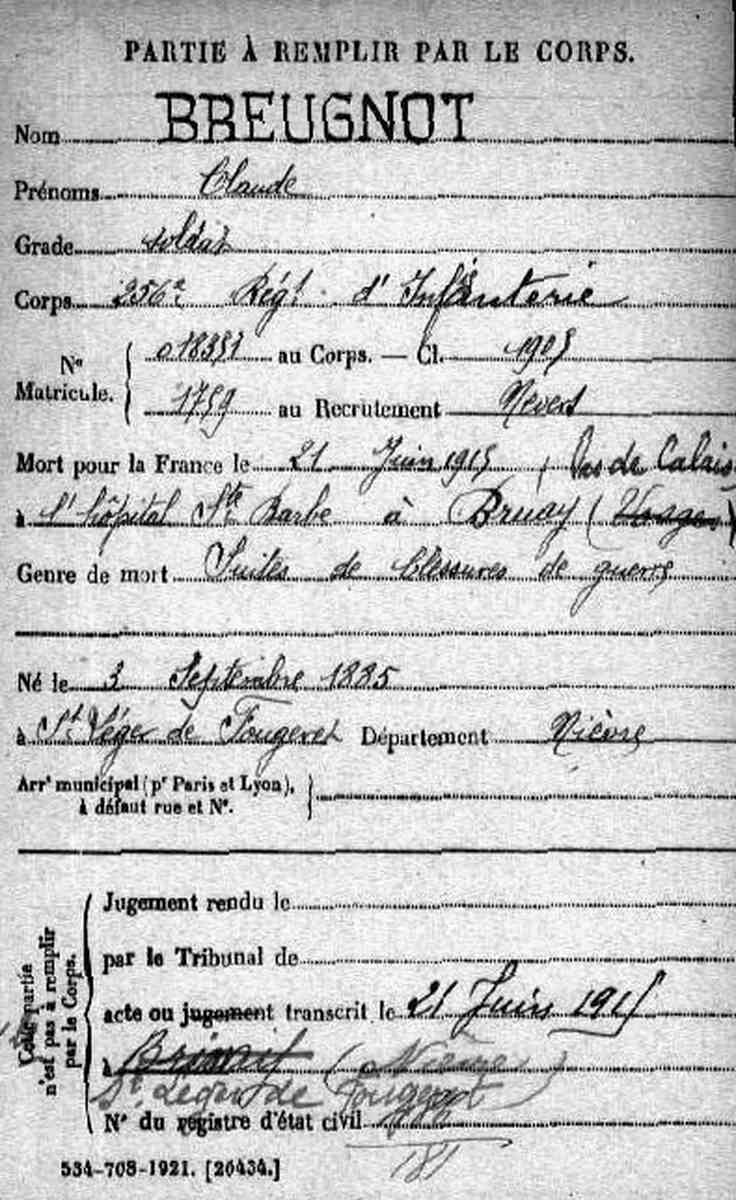 PARTIE À REMPLIR PAR LE CORPS.
Nom BREUGNOT
Prénoms Claude
Grade soldat
Corps 256e Régt d'Infanterie
Nº Matricule. au Corps. — Cl. 1905
1759 au Recrutement Nevers
Mort pour la France le 21 Juin 1915 (Pas de Calais
à l'hôpital Ste Barbe à Bruay (Vosges)
Genre de mort Suites de blessures de guerre
Né le 3 Septembre 1885
à St Léger de Fougeret Département Nièvre
Arrt municipal (pr Paris et Lyon),
à défaut rue et Nº.
Cette partie
n'est pas à remplir
par le Corps.
Jugement rendu le
par le Tribunal de
acte ou jugement transcrit le 21 Juin 1915
à (Nièvre)
St Léger de Fougeret
Nº du registre d'état civil
181
534-708-1921. [26434.]